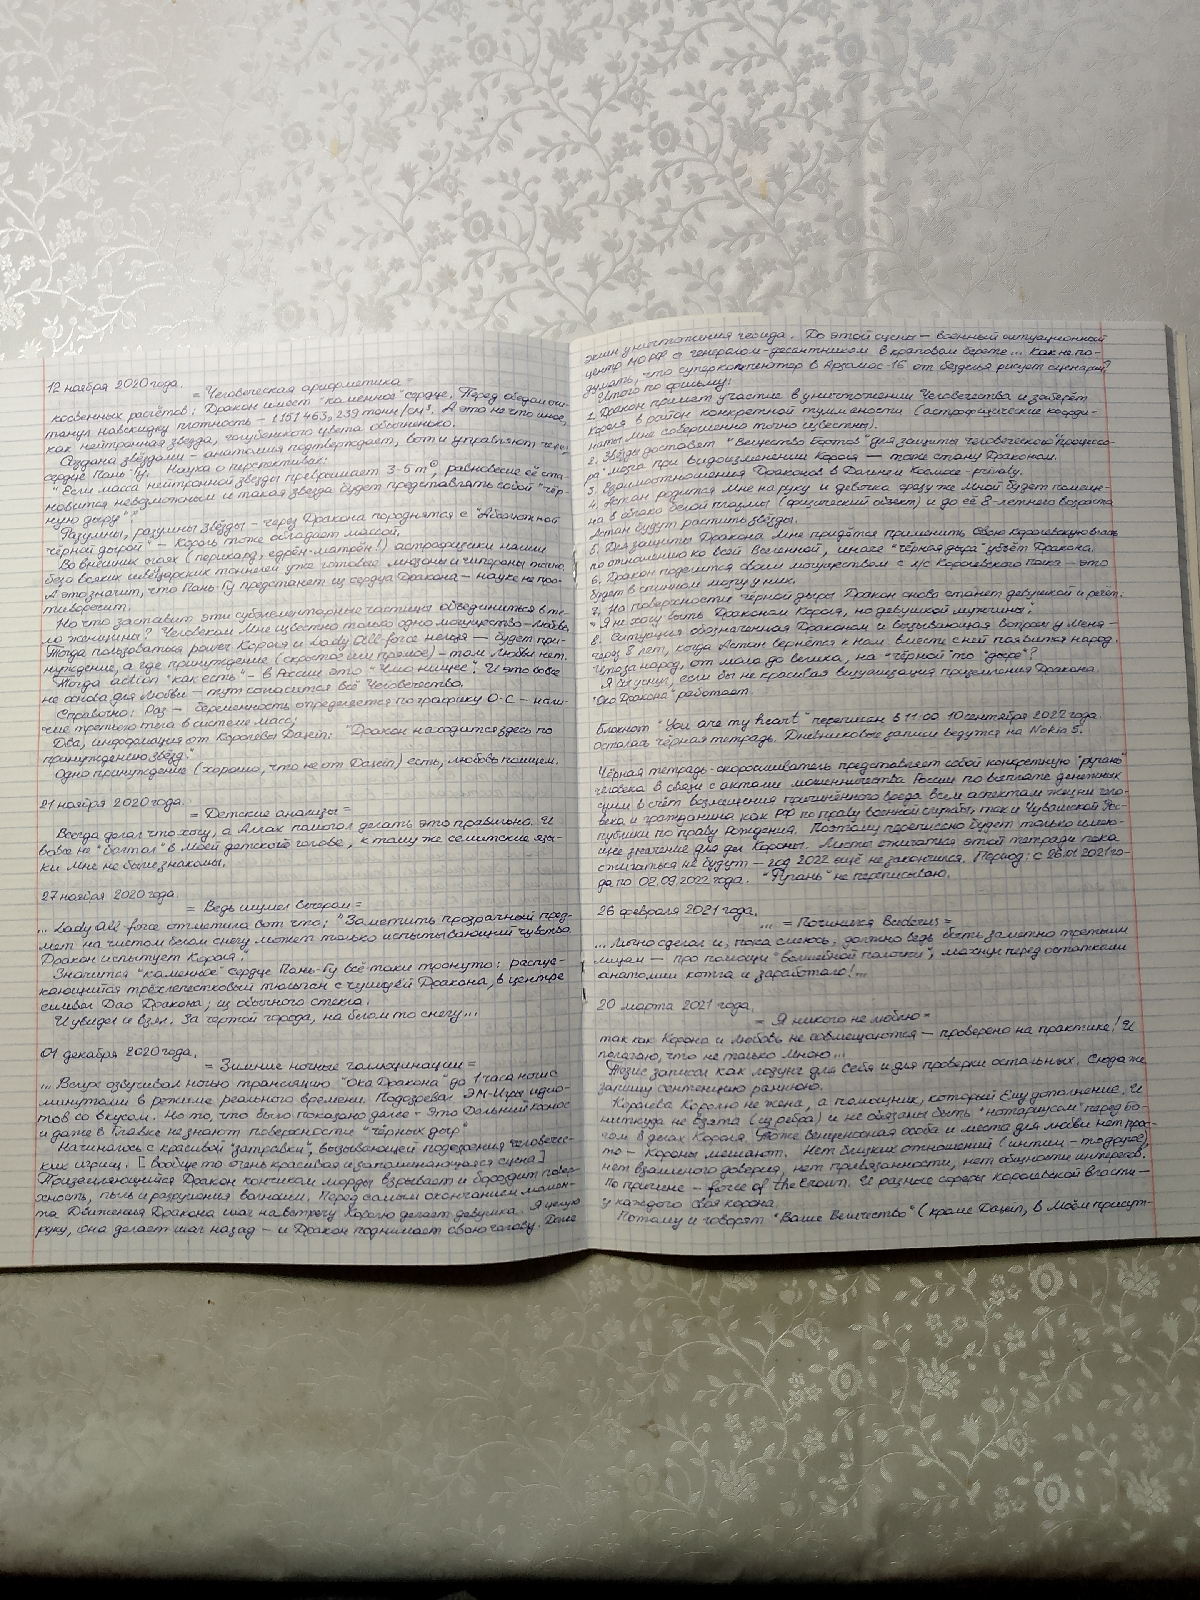 12 ноября 2020 года.
= Человеческая арифметика =
косвенных расчётов: Дракон имеет "каменное" сердце. Перед обедом
танул навскидку плотность – 1151463,239 тонн/см³. А это не что иное,
как нейтронная звезда, голубенького цвета обычненько.
Создана звёздами – анатомия подтверждает, вот и управляют через
сердце Пань-Гу. Наука о перспективах:
"Если масса нейтронной звезды превышает 3-5 m☉, равновесие её ста-
новится невозможным и такая звезда будет представлять собой "чёр-
ную дыру"."
Разумны, разумны Звёзды – через Дракона породнятся с "Абсолютной
чёрной дырой" – Король тоже обладает массой.
Во внешних очах (перикард, едрён-матрён!) астрофизики нашли
безо всяких швейцарских тоннелей уже готовые мюзоны и гипероны точно.
А это значит, что Пань-Гу предстанет из сердца Дракона – науке не про-
тиворечит.
Но что заставит эти субэлементарные частицы объединиться в те-
ло женщины? Человекам Мне известно только одно могущество – Любовь.
Тогда пользоваться power Короля и Lady All-force нельзя – будет при-
нуждение, а где принуждение (скрытое или прямое) – там Любви нет.
Тогда action "как есть" – в России это "Ушло нищее". И это вовсе
не основа для Любви – тут согласится всё Человечество.
Справочно: Раз – беременность определяется по графику О-С – нали-
чие третьего тела в системе масс;
Два, информация от Королевы Дацин: "Дракон находится здесь по
принуждению звёзд."
Одно принуждение (хорошо, что не от Дацин) есть, любовь поищем.
21 ноября 2020 года.
= Детские анализы =
Всегда делал что хочу, а Аллах помогал делать это правильно. И
вовсе не "болтал" в Моей детской голове, к тому же семитские язы-
ки Мне не были знакомы.
27 ноября 2020 года.
= Ведь шумел Вечером =
... Lady All-force отметила вот что: "Заметить прозрачный пред-
мет на чистом белом снегу может только испытывающий чувства.
Дракон испытует Короля."
Значится "каменное" сердце Пань-Гу всё-таки тронуто: распус-
кающийся трёхлепестковый тюльпан с чушуёй Дракона, в центре
символ Дао Дракона; из обычного стекла.
И увидел и взял. За чертой города, на белом то снегу...
01 декабря 2020 года.
= Зимние ночные галлюцинации =
... Вслух озвучивал ночью трансляцию "Ока Дракона" до 1 часа ночи с
минутами в режиме реального времени. Подозревал ЭМ-Игры идио-
тов со вкусом. Но то, что было показано далее – это Дальний Космос
и даже в Главке не знают поверхности "чёрных дыр".
Началось с красивой "затравки", вызывающей подозрения человечес-
ких игрищ. [Вообще то очень красивая и запоминающаяся сцена]
Приземляющийся Дракон кончиком морды взрывает и бороздит повер-
хность, пыль и разрушения волнами. Перед самым окончанием момен-
та Движения Дракона шаг навстречу Королю делает девушка. Я целую
руку, она делает шаг назад – и Дракон поднимает свою голову. Далее
экшн уничтожения геоида. До этой сцены – военный ситуационный
центр МО РФ с генералом-десантником в краповом берете... Как не по-
думать, что суперкомпьютер в Арзамас-16 от безделья рисует сценарий?
Итого по фильму:
1. Дракон примет участие в уничтожении Человечества и заберёт
Короля в район конкретной туманности (астрофизические коорди-
наты Мне совершенно точно известны).
2. Звёзды доставят "Вещество Богов" для защиты человеческого "процессо-
ра" мозга при видоизменении Короля – тоже стану Драконом.
3. Взаимоотношения Драконов в Дальнем Космосе – privaty.
4. Астан родится Мне на руку и девочка сразу же Мной будет помеще-
на в облако белой плазмы (физический объект) и до её 8-летнего возраста
Астан будут растить звёзды.
5. Для защиты Дракона Мне придётся применить Свою Королевскую власть
по отношению ко всей Вселенной, иначе "чёрная дыра" убьёт Дракона.
6. Дракон поделится своим могуществом с л/с Королевского полка – это
будет в спинном мозгу у них.
7. На поверхности чёрной дыры Дракон снова станет девушкой и речёт:
"Я не хочу быть Драконом Короля, но девушкой мужчины."
8. Ситуация обозначенная Драконом и вызывающая вопросы у Меня –
через 8 лет, когда Астан вернётся к Нам, вместе с ней появится народ.
Что за народ, от мала до велика, на "чёрной" то "дыре"?
Я бы уснул, если бы не красивая визуализация приземления Дракона.
"Око Дракона" работает.
Блокнот "You are my heart" переписан в 11:00 10 сентября 2022 года.
осталась чёрная тетрадь. Дневниковые записи ведутся на Nokia 5.
Чёрная тетрадь-скоросшиватель представляет собой конкретную "ругань"
человека в связи с актами мошенничества России по выплате денежных
сумм в счёт возмещения причинённого вреда всем аспектам жизни чело-
века и гражданина как РФ по праву военной службы, так и Чувашской Рес-
публики по праву Рождения. Поэтому переписано будет только имею-
щее значение для дел Короны. Листы отжитая этой тетради пока
сжигаться не будут – год 2022 ещё не закончился. Период: с 26.01.2021 го-
да по 02.09.2022 года. "Ругань" не переписываю.
26 февраля 2021 года.
... = Починился Budderus =
... Лично сделал и, пока смеюсь, должно ведь быть заметно третьим
лицам – про помощи "волшебной палочки", махнул перед остатками
анатомии котла и заработало!...
20 марта 2021 года.
= Я никого не люблю =
так как Корона и Любовь не совмещаются – проверено на практике! И
полагаю, что не только Мною...
Тезис записал как лозунг для Себя и для проверки остальных. Сюда же
запишу сентенцию раннюю.
Королева Королю не жена, а помощник, который Ему дополнение. И
ниткуда не взята (из ребра) и не обязаны быть "нотариусом" перед Бо-
гом в делах Короля. Тоже венценосная особа и места для любви нет прос-
то – Короны мешают. Нет близких отношений (интим – то другое),
нет взаимного доверия, нет привязанности, нет общности интересов.
По причине – force of the Crown. И разные сферы королевской власти –
у каждого своя корона.
Потому и говорят "Ваше Величество" (кроме Дацин, в Моём присут-